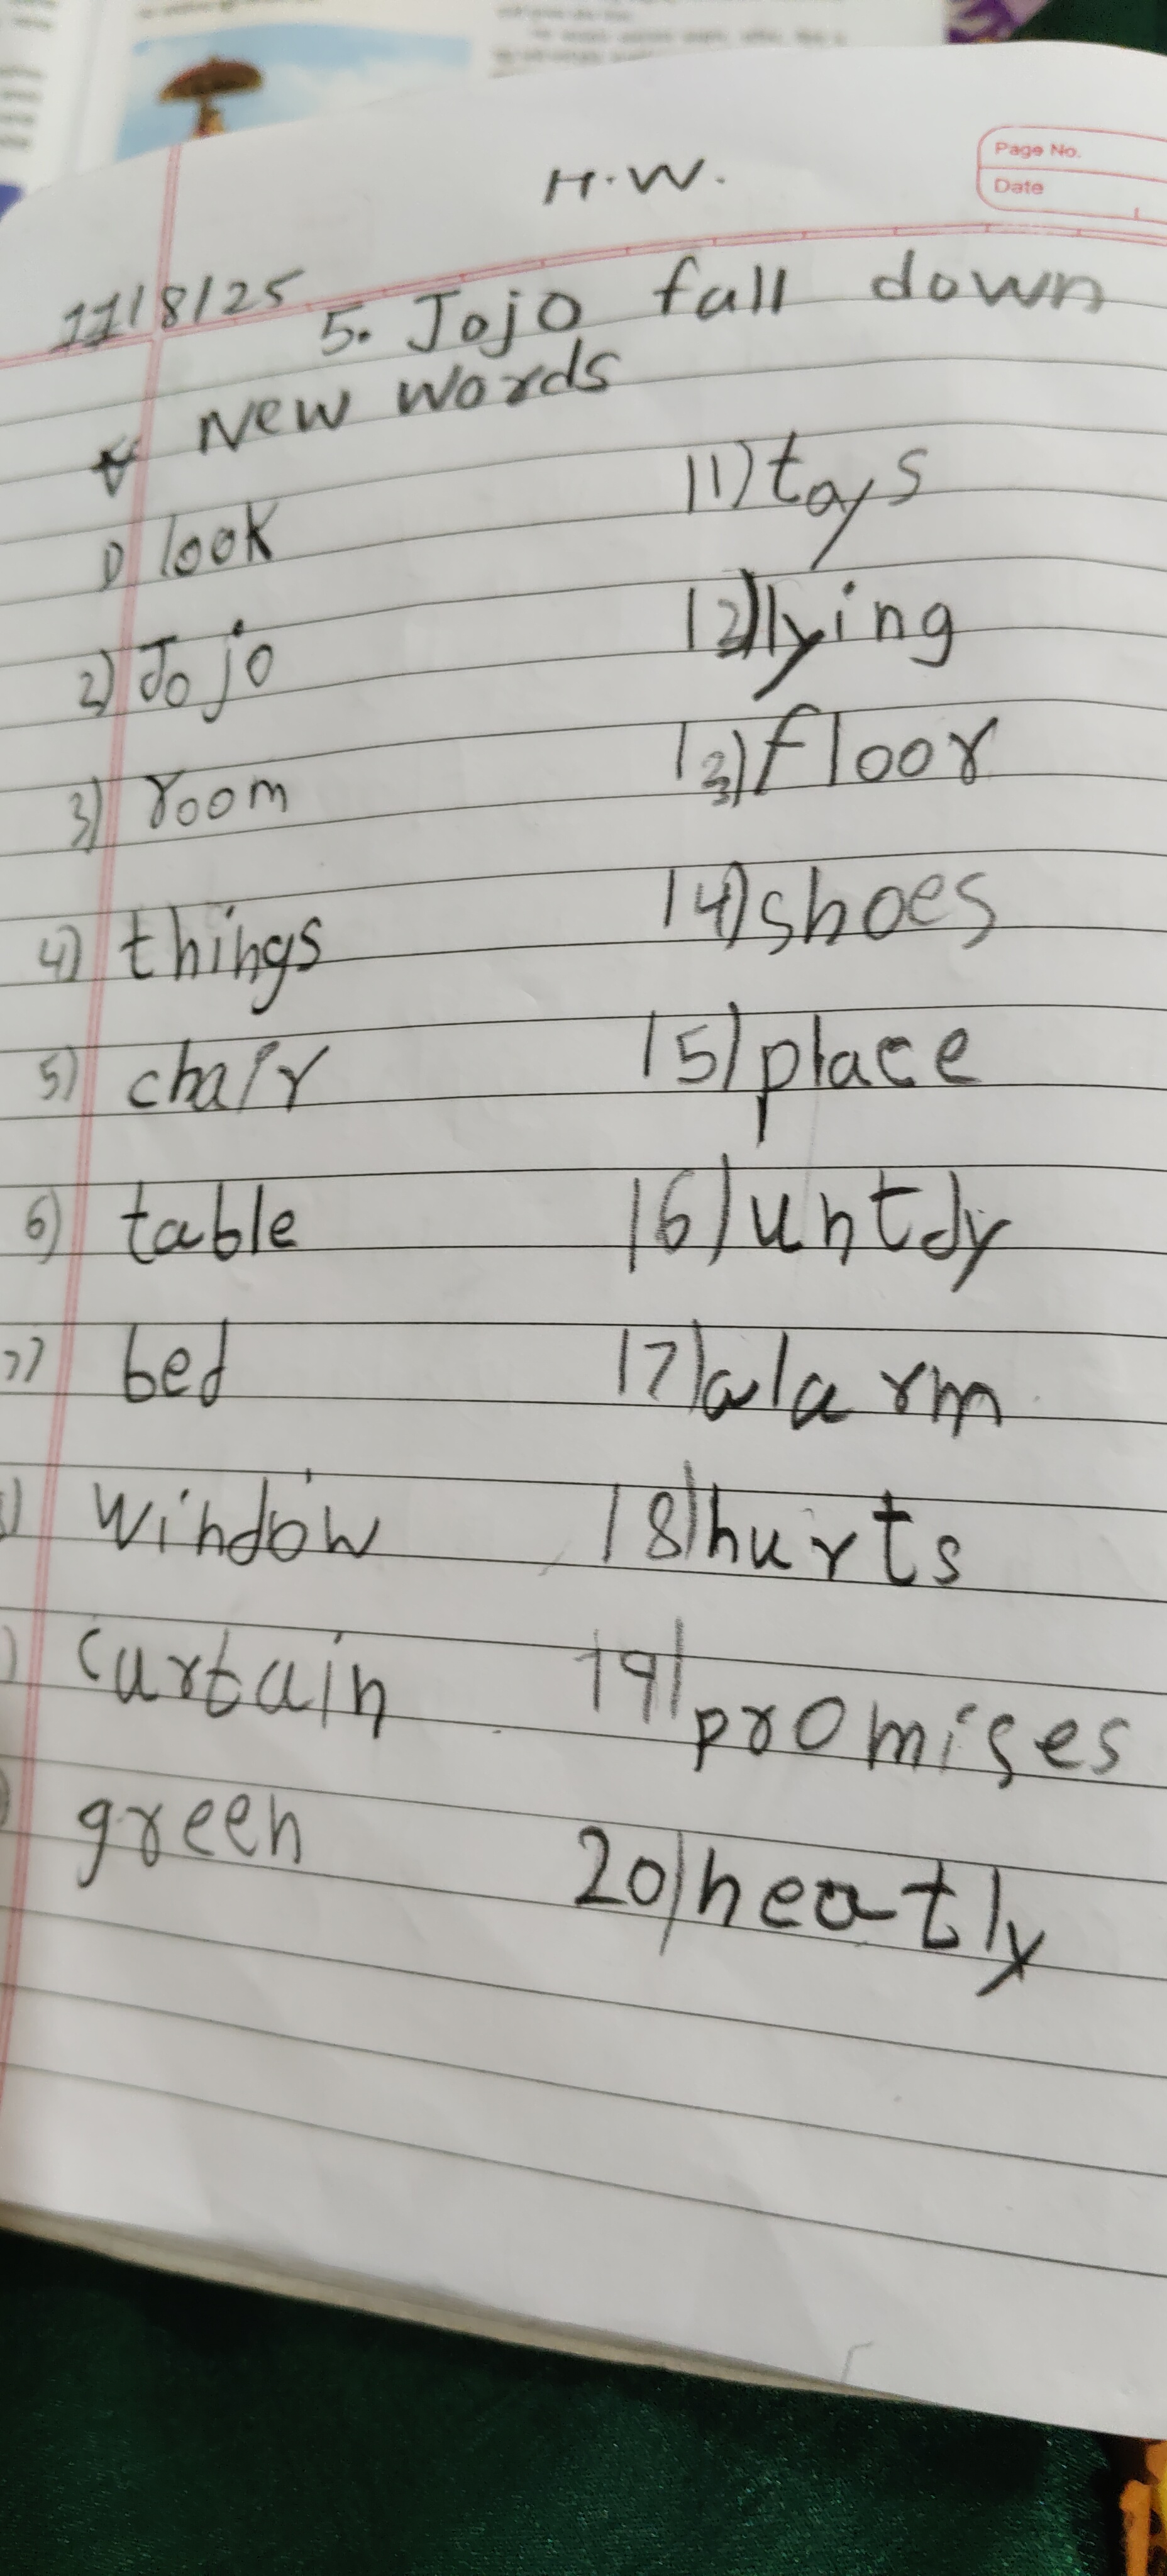 H.W.
Page No.
Date
11/8/25
5. Jojo fall down
New words
1) look
2) Jojo
3) room
4) things
5) chair
6) table
7) bed
) window
) curtain
) green
11) toys
12) lying
13) floor
14) shoes
15) place
16) untdy
17) alarm
18) hurts
19) promises
20) neatly